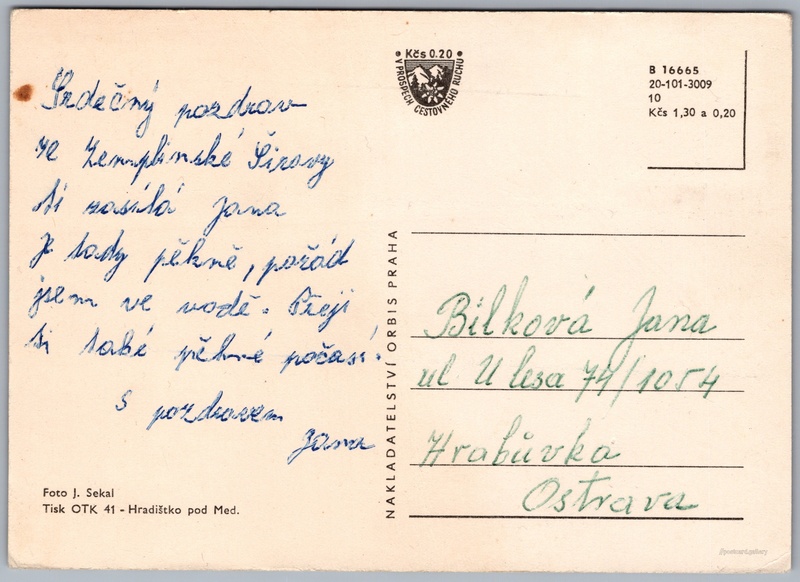 Srdečný pozdrav
ze Zemplínské Šíravy
ti zasílá Jana
Je tady pěkně, pořád
jsem ve vodě. Přeji
ti také pěkné počasí.
S pozdravem
Jana
Foto J. Sekal
Tisk OTK 41 - Hradištko pod Med.
NAKLADATELSTVÍ ORBIS PRAHA
• Kčs 0.20 •
V PROSPĚCH CESTOVNÍHO RUCHU
B 16665
20-101-3009
10
Kčs 1,30 a 0,20
Bílková Jana
ul U lesa 74/1054
Hrabůvka
Ostrava